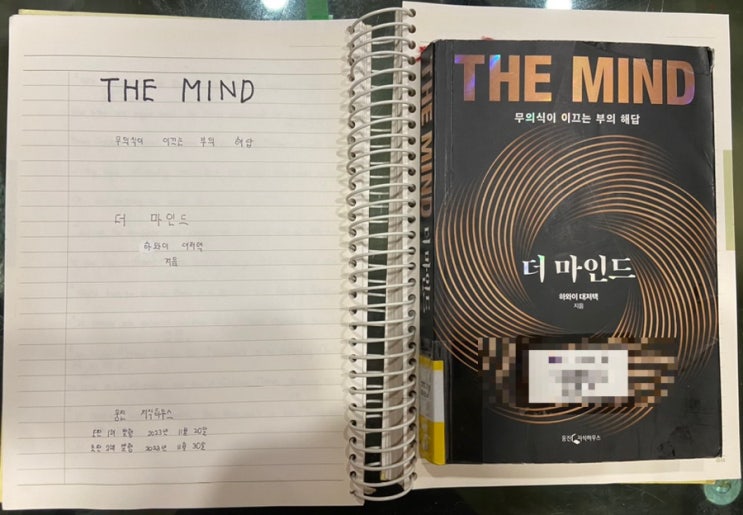 THE MIND
무의식이 이끄는 부의 해답
더 마인드
하와이 대저택
지음
웅진 지식하우스
초판 1쇄 발행 2023년 11월 20일
초판 2쇄 발행 2023년 11월 30일
THE MIND 더 마인드
THE MIND
무의식이 이끄는 부의 해답
더 마인드
하와이 대저택
지음
웅진 지식하우스